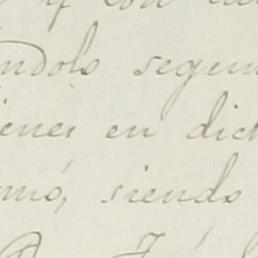 y con
ndolo segun
ienes en dich
mó, siendo